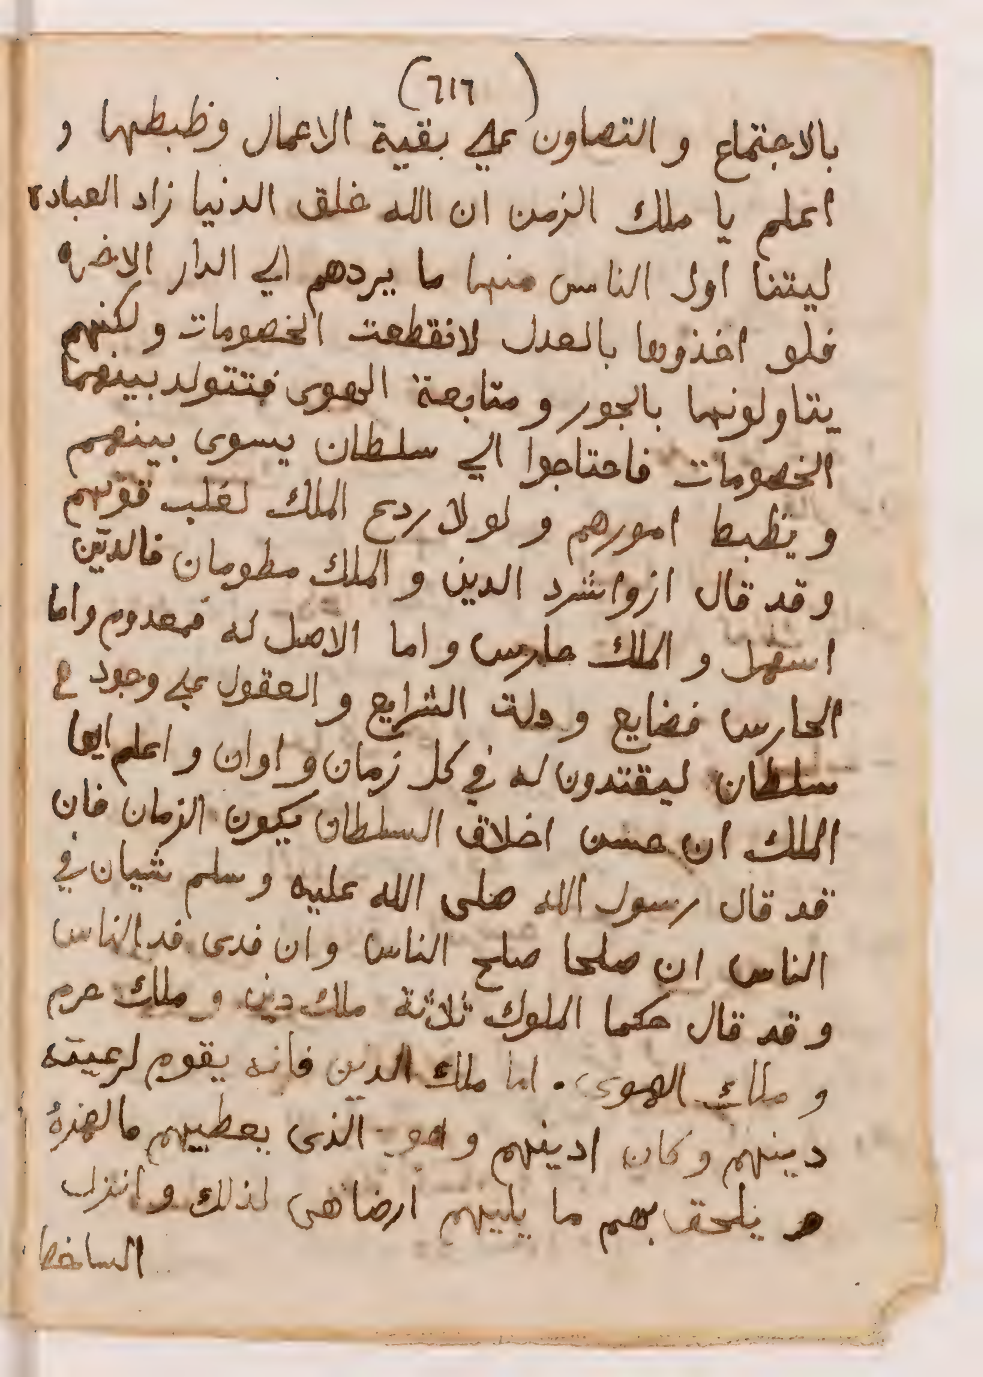 (٦١٦)
بالاجتماع و التصاون علي بقية الاعمال وظبطها و
اعلم يا ملك الزمن ان الله خلق الدنيا زاد العباده
ليتنا اول الناس منها ما يردهم الي الدار الاخره
فلو اخذوها بالعدل لانقطعت الخصومات ولكنهم
يتاولونها بالجور و متابعة الهوى فتتولد بينهما
الخصومات فاحتاجوا الي سلطان يسوى بينهم
و يظبط امورهم و لولا ردع الملك لغلب قويهم
وقد قال ازواشرد الدين و الملك مطومان فالدين
اسهل و الملك حارس و اما الاصل له فمعدوم واما
الحارس فضايع و دلت الشرايع و العقول علي وجود
سلطان ليقتدون له في كل زمان و اوان و اعلم ايها
الملك ان حسن اخلاق السلطان يكون الزمان فان
قد قال رسول الله صلى الله عليه و سلم شيان في
الناس ان صلحا صلح الناس وان فدى فد الناس
و قد قال حكما الملوك ثلاثة ملك دين و ملك حرم
و ملك الهوى . اما ملك الدين فانه يقوم لرعيته
دينهم وكان ادينهم و هو الذى بعطيهم مالهذه
هر يلحق بهم ما يليهم ارضاهى لذلك و انزل
الساخط